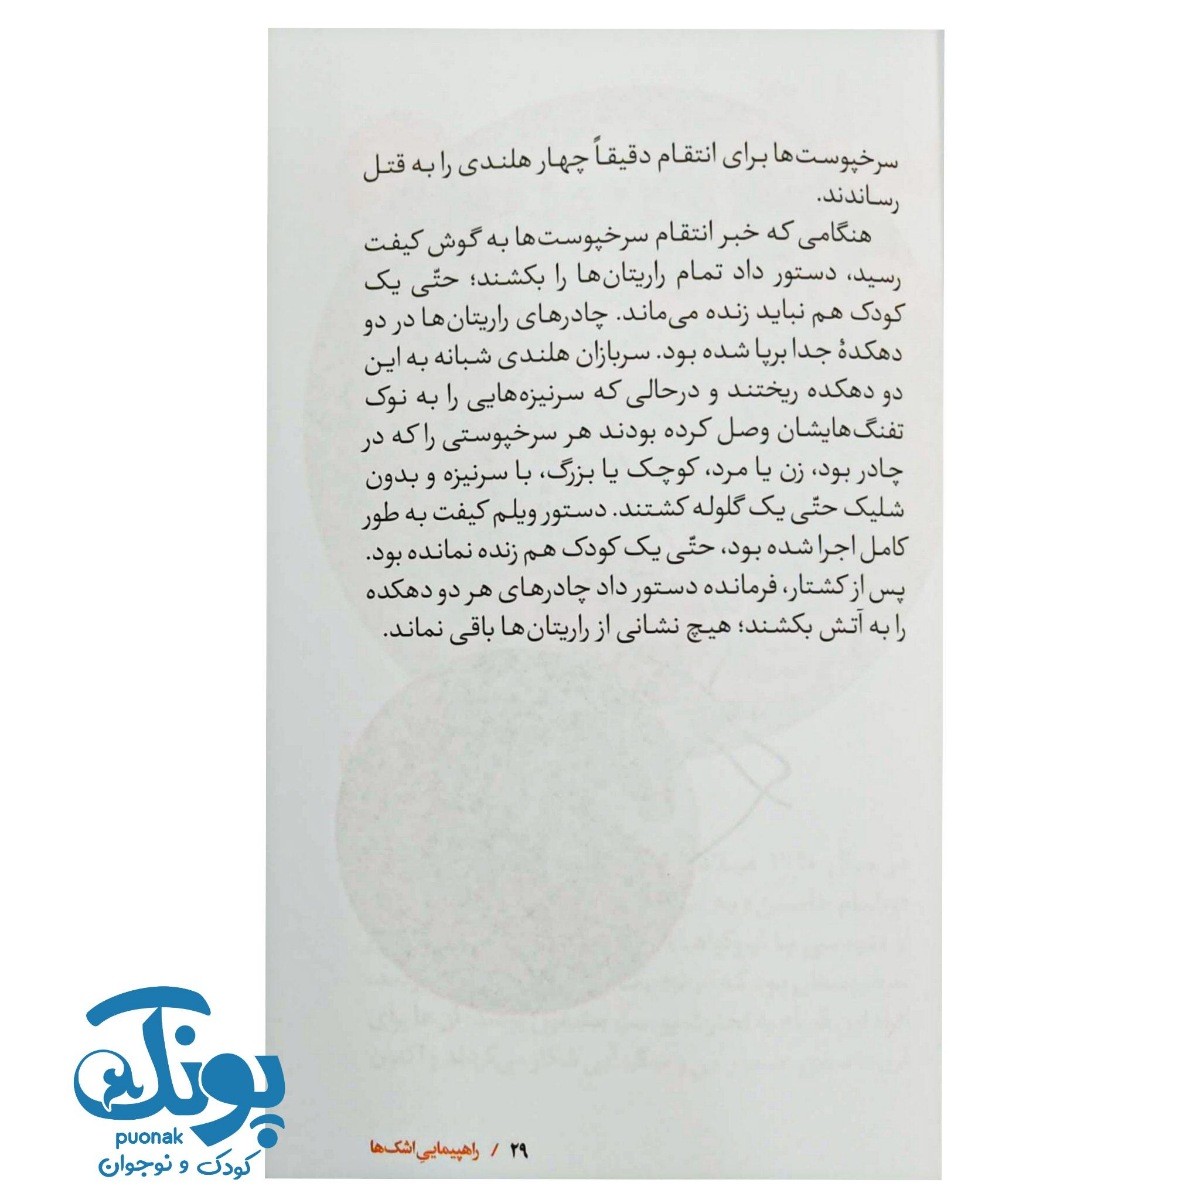 سرخپوست‌ها برای انتقام دقیقاً چهار هلندی را به قتل
رساندند.
هنگامی که خبر انتقام سرخپوست‌ها به گوش کیفت
رسید، دستور داد تمام راریتان‌ها را بکشند؛ حتّی یک
کودک هم نباید زنده می‌ماند. چادرهای راریتان‌ها در دو
دهکدهٔ جدا برپا شده بود. سربازان هلندی شبانه به این
دو دهکده ریختند و درحالی که سرنیزه‌هایی را به نوک
تفنگ‌هایشان وصل کرده بودند هر سرخپوستی را که در
چادر بود، زن یا مرد، کوچک یا بزرگ، با سرنیزه و بدون
شلیک حتّی یک گلوله کشتند. دستور ویلم کیفت به طور
کامل اجرا شده بود، حتّی یک کودک هم زنده نمانده بود.
پس از کشتار، فرمانده دستور داد چادرهای هر دو دهکده
را به آتش بکشند؛ هیچ نشانی از راریتان‌ها باقی نماند.
۲۹ / راهپیمایی اشک‌ها
پونک
puonak
کودک و نوجوان